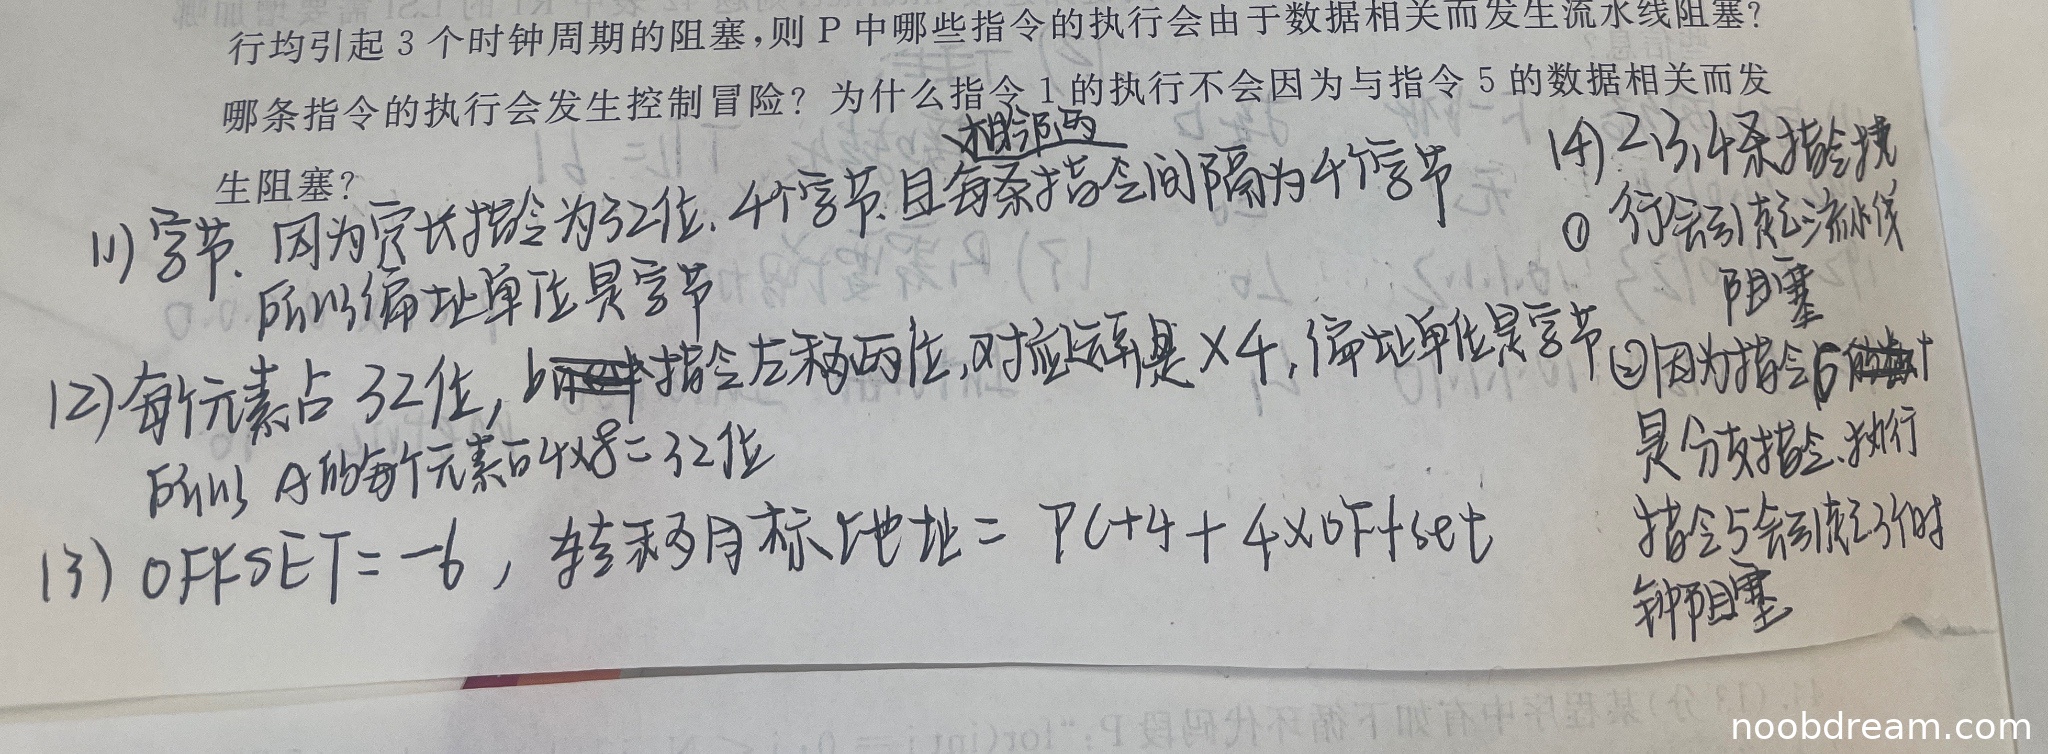 行均引起 3 个时钟周期的阻塞,则 P 中哪些指令的执行会由于数据相关而发生流水线阻塞?
哪条指令的执行会发生控制冒险? 为什么指令 1 的执行不会因为与指令 5 的数据相关而发
生阻塞?
相邻两
11) 字节. 因为定长指令为32位. 4个字节. 且每条指令间隔为4个字节
所以编址单位是字节
12) 每个元素占 32位, 指令左移两位, 对应运算是×4, 编址单位是字节
所以 A的每个元素占4×8=32位
13) OFFSET=-6, 转移目标地址= PC+4+4×OFFset
14) 2,3,4条指令执
① 行会引起流水线
阻塞
②因为指令6
是分支指令.执行
指令5会引起3个时
钟阻塞
noobdream.com